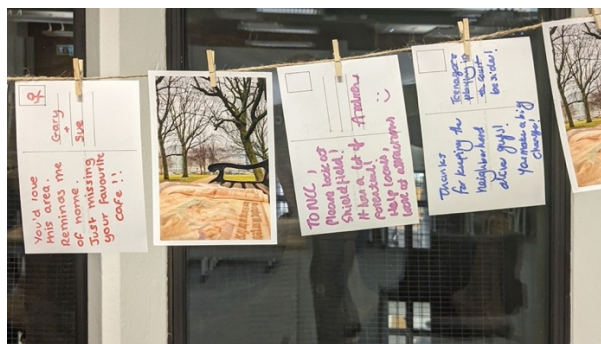 You'd love
this area.
Reminds me
of home.
Just missing
your favourite
cafe!!
Gary
+
Sue
TO NCC,
Please look at
Shieldfield!
It has a lot of
potential!
Help locals,
look at attractions
Andrew
Thanks
for keeping the
neighborhood
alive guys!
You make a big
change!
Teenagers
playing in
the court
besides!